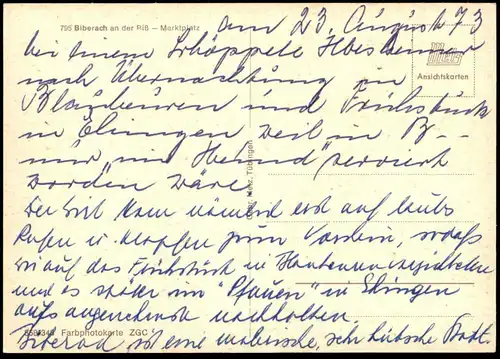 795 Biberach an der Riß – Marktplatz
am 23. August 73
bei einem Schöppele
Ansichtskarten
nach Übernachtung in
Blaubeuren und Frühstück
in Ehingen weil in B--
nur "im Hemd" serviert
worden wäre
Der Wirt kam nämlich erst auf lautes
Rufen u. Klopfen zum Vorschein,
wir auf das Frühstück in
und es später im "Pfauen" in Ehingen
aufs angenehmste nachholten.
Farbphotokarte ZGC
Biberach ist eine malerische, sehr hübsche Stadt.
Gebr. Metz, Tübingen